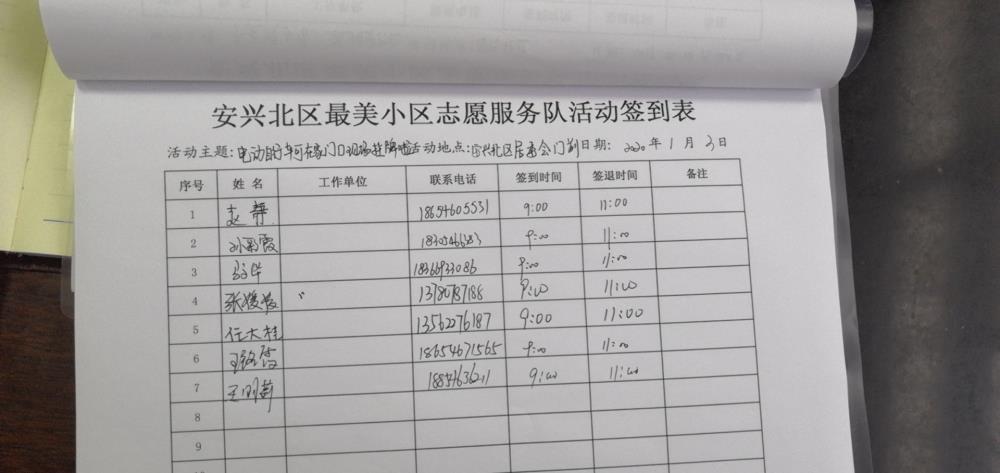 安兴北区最美小区志愿服务队活动签到表
活动主题:电动自行车可在家门口现场挂牌啦活动地点:安兴北区居委会门前日期: 2020 年 1 月 3 日
序号 姓名 工作单位 联系电话 签到时间 签退时间 备注
1 赵静 18654605531 9:00 11:00
2 9:00 11:00
3 9:00 11:00
4 13780787188 9:00 11:00
5 任大桂 13562276187 9:00 11:00
6 18654671565 9:00 11:00
7 9:00 11:00
8
9